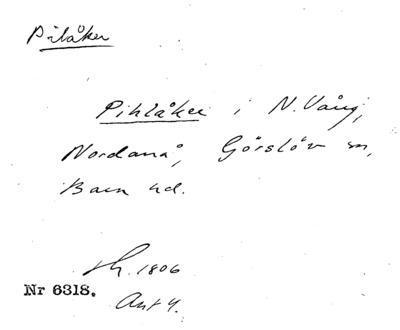 Pilåker
Pihlåker i N. Vång,
Nordanå, Görslöv sn,
Bara hd.
sk. 1806
Nr 6318.
Akt 4.